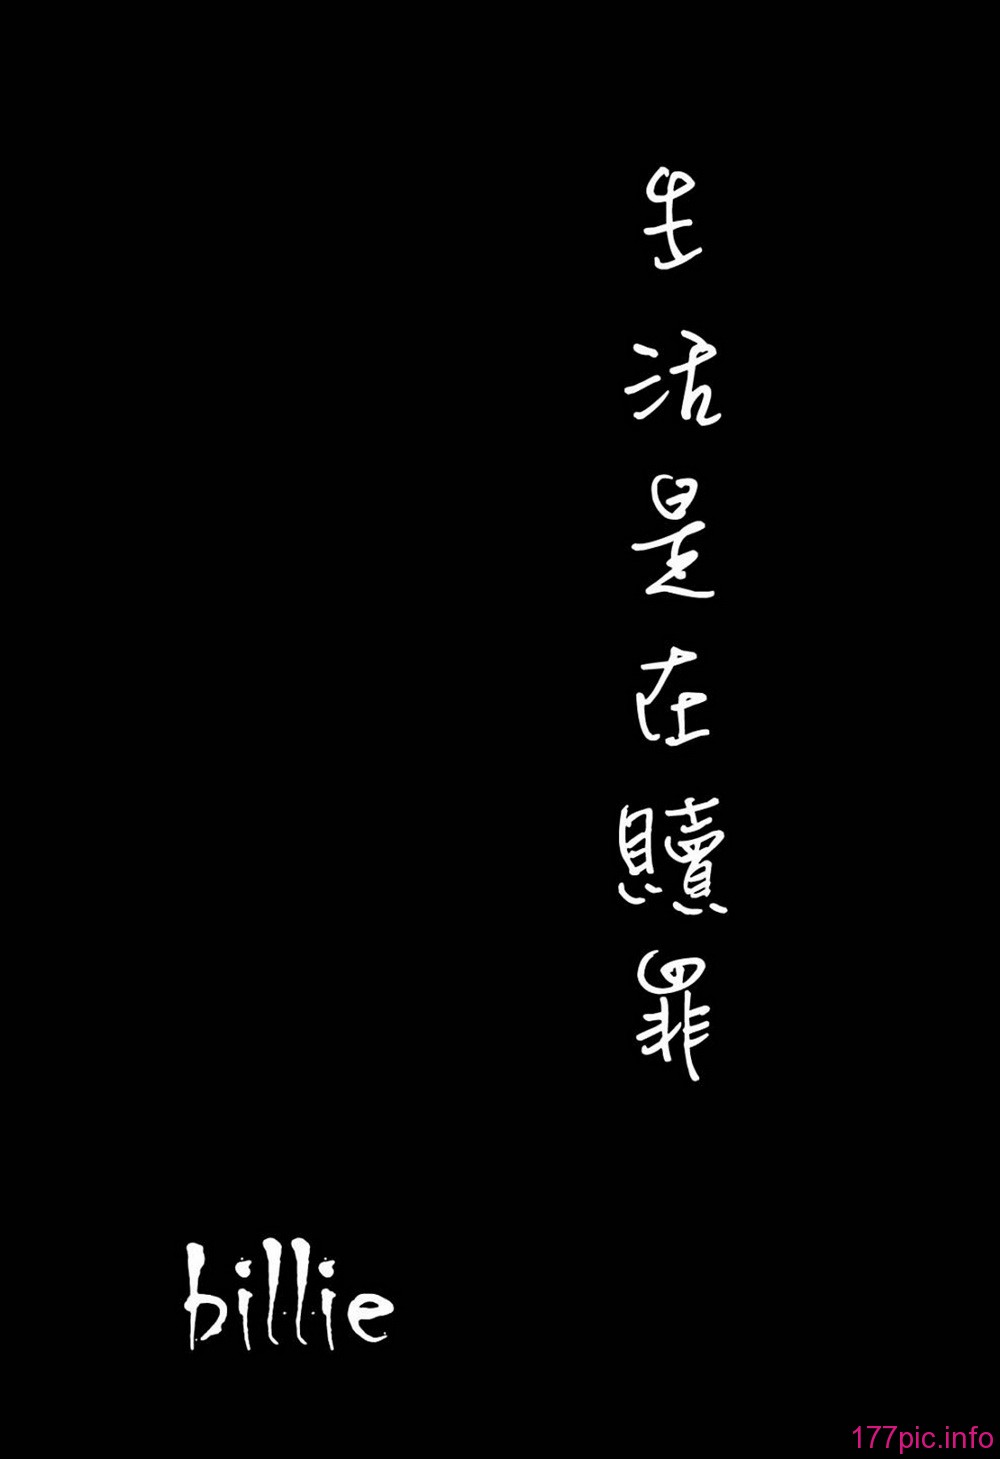 生活是在贖罪
billie
177pic.info